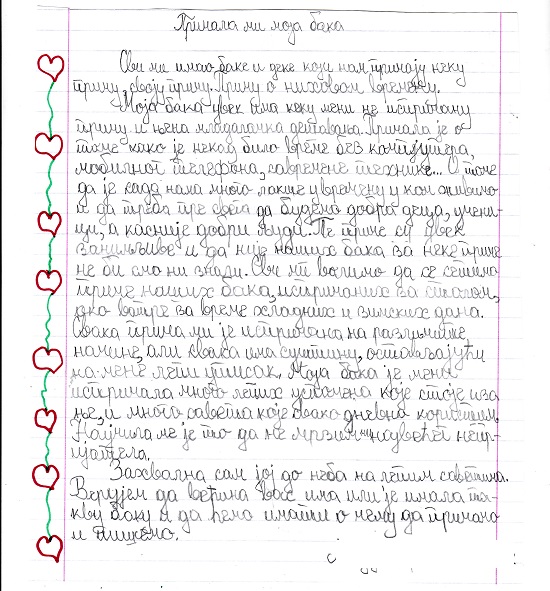 Причала ми моја бака
Сви ми имамо баке и деке који нам причају неку
причу, своју причу. Причу о њиховом времену.
Моја бака увек има неку мени не испричану
причу и њена младалачка дешавања. Причала је о
томе како је некад било време без компјутера,
мобилног телефона, савремене технике... О томе
да је сада нама много лакше у времену у ком живимо
и да треба пре свега да будемо добра деца, учени-
ци, а касније добри људи. Те приче су увек
занимљиве и да није наших бака за неке приче
не би смо ни знали. Сви ми волимо да се сетимо
приче наших бака, испричаних за столом,
око ватре за време хладних и зимских дана.
Свака прича ми је испричана на различите
начине, али свака има суштину, остављајући
на мене лепи утисак. Моја бака је мени
испричала много лепих успомена које стоје иза
ње, и много савета које свако дневно користим.
Научила ме је то да не мрзим ни највећег непр-
ијатеља.
Захвална сам јој до неба на лепим саветима.
Верујем да већина вас има или је имала та-
кву баку и да ћемо имати о чему да причамо
и пишемо.